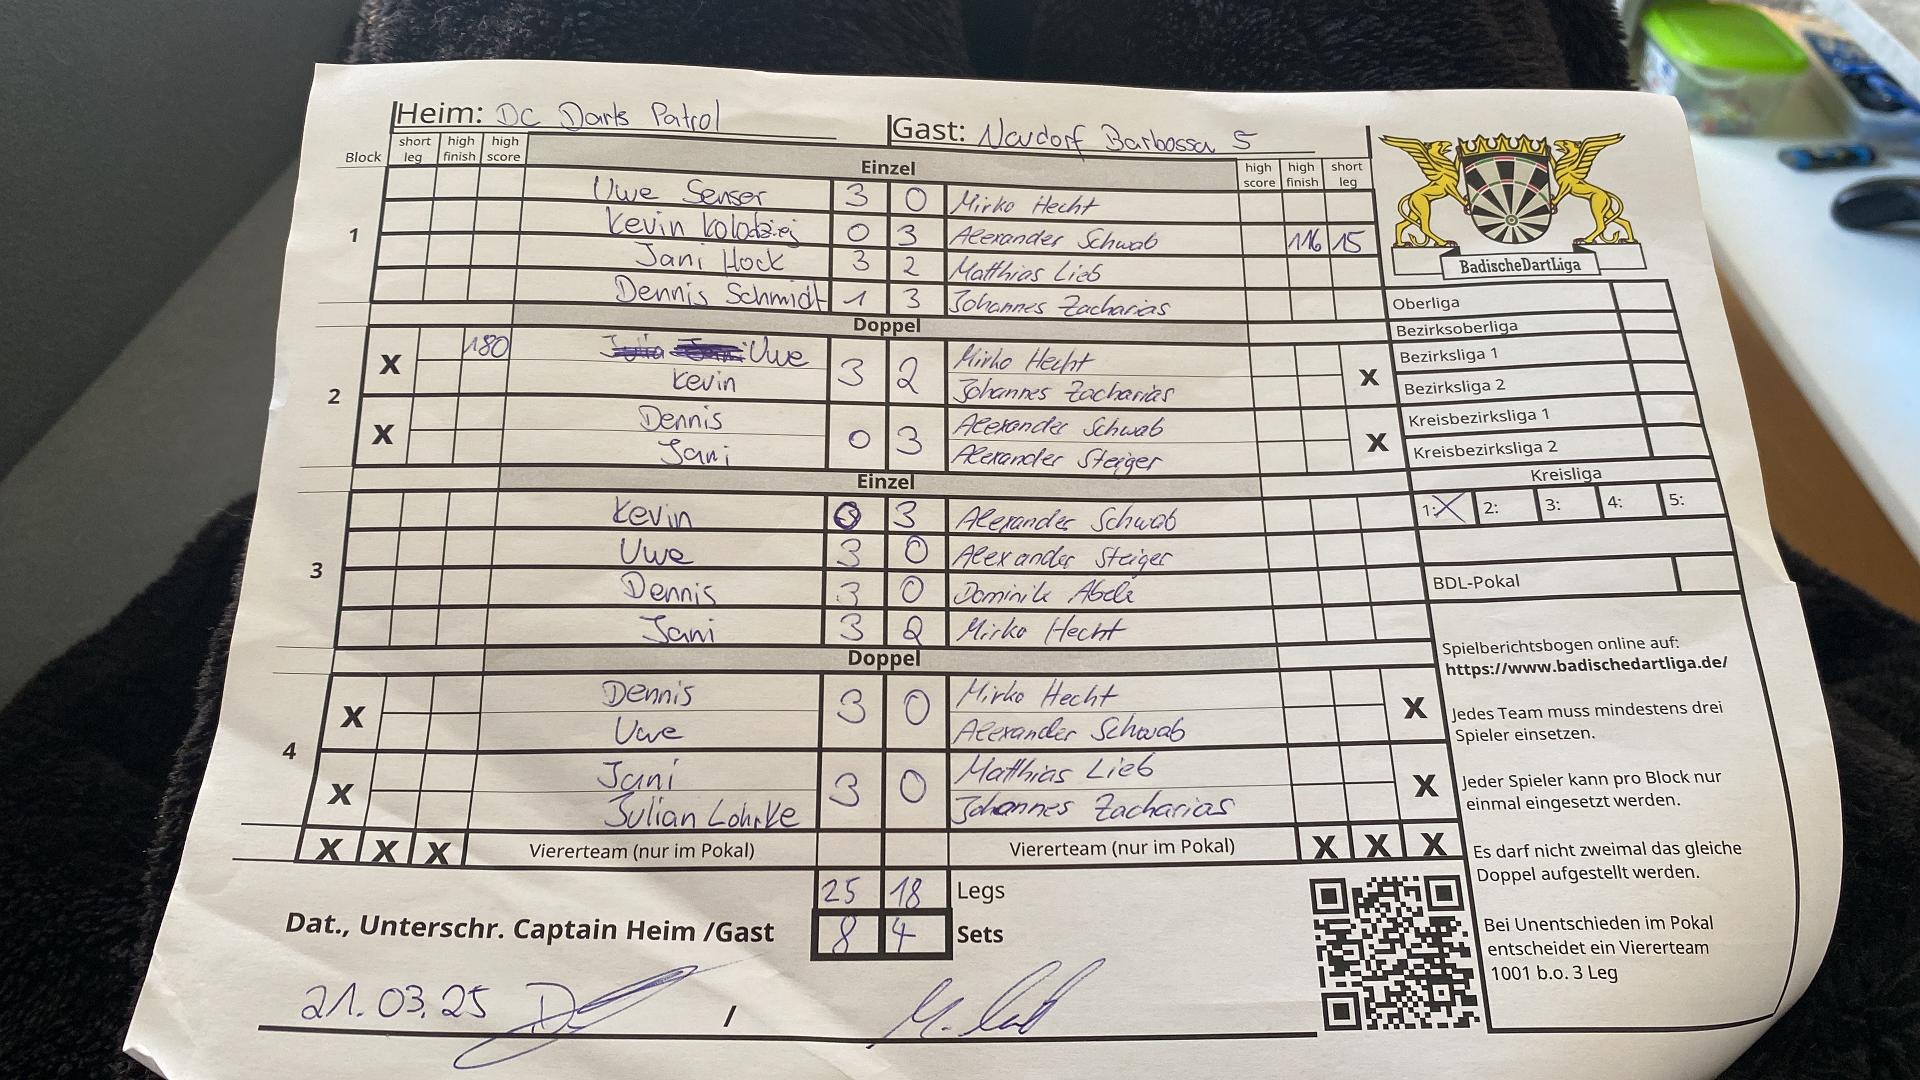 Heim: DC Darts Patrol
Gast: Neudorf Barbossa 5
Block short leg high finish high score Einzel high score high finish short leg
1
Uwe Senser 3 0 Mirko Hecht
Kevin Kolodziej 0 3 Alexander Schwab 116 15
Jani Hock 3 2 Matthias Lieb
Dennis Schmidt 1 3 Johannes Zacharias
Doppel
2
X 180 Uwe 3 2 Mirko Hecht X
Kevin Johannes Zacharias
X Dennis 0 3 Alexander Schwab X
Jani Alexander Steiger
Einzel
3
Kevin 0 3 Alexander Schwab
Uwe 3 0 Alexander Steiger
Dennis 3 0 Dominik Abele
Jani 3 2 Mirko Hecht
Doppel
4
X Dennis 3 0 Mirko Hecht X
Uwe Alexander Schwab
X Jani 3 0 Matthias Lieb X
Julian Lohrke Johannes Zacharias
X X X Viererteam (nur im Pokal) Viererteam (nur im Pokal) X X X
25 18 Legs
8 4 Sets
Dat., Unterschr. Captain Heim /Gast
21.03.25 /
BadischeDartLiga
Oberliga
Bezirksoberliga
Bezirksliga 1
Bezirksliga 2
Kreisbezirksliga 1
Kreisbezirksliga 2
Kreisliga
1: X 2: 3: 4: 5:
BDL-Pokal
Spielberichtsbogen online auf:
https://www.badischedartliga.de/
Jedes Team muss mindestens drei
Spieler einsetzen.
Jeder Spieler kann pro Block nur
einmal eingesetzt werden.
Es darf nicht zweimal das gleiche
Doppel aufgestellt werden.
Bei Unentschieden im Pokal
entscheidet ein Viererteam
1001 b.o. 3 Leg